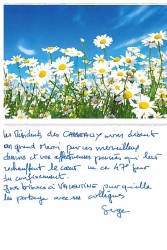 Les Résidents des CASSEAUX vous disent
un grand Merci pour ces merveilleux
dessins et vos affectueuses pensées qui leur
réchauffent le cœur en ce 47e jour
de confinement.
Gros bisous à VALENTINE pour qu'elle
les partage avec ses collègues
Serge